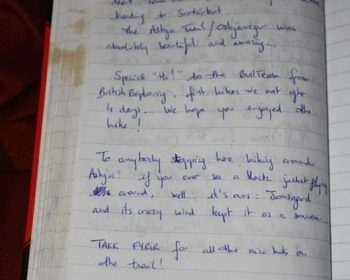 heading to
The Askja Trail / Öskjuvegur was
absolutely beautiful and amazing...
Special "Hi!" to the Red Team from
British Exploring, first hikers we met after
4 days... We hope you enjoyed the
hike!
To anybody stopping here, hiking around
Askja: if you ever see a black jacket flying
around, well... it's ours:
and its crazy wind kept it as a souvenir...
TAKK FYRIR for all the nice huts on
the trail!